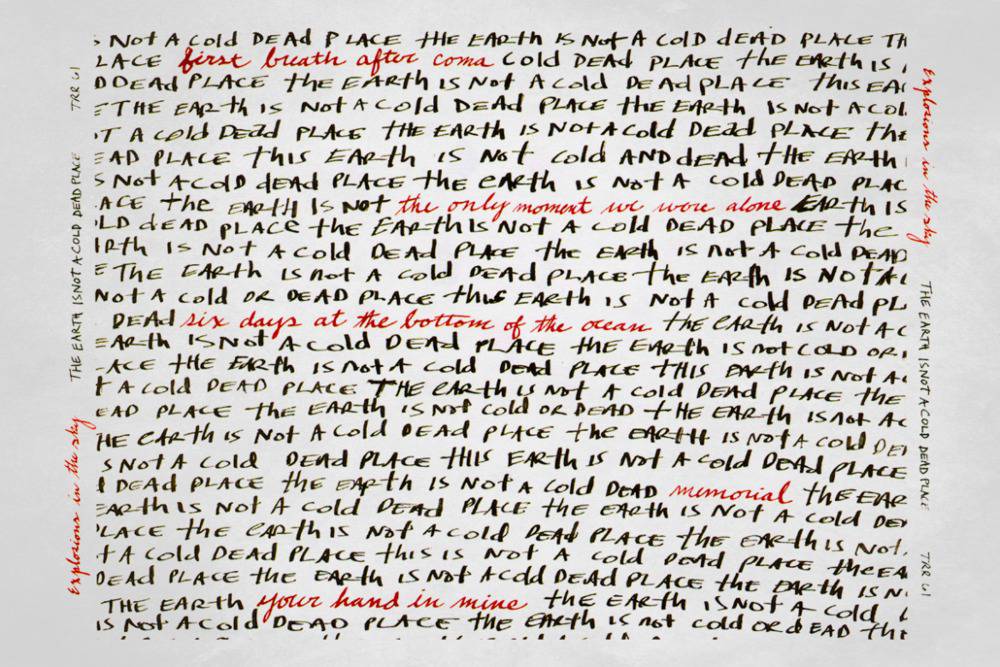 S Not A Cold DEAd PLACE the EARth IS Not A ColD dEAD PLACE TH
LACE first breath after coma Cold DEAD PLACE the EARth IS
D DEAD PLACE the EARth IS Not A Cold DEAd PLACE this EA
E THE EARth IS Not A Cold DEAD PLACE the EARth IS Not A Col
T A Cold DEad PLACE the EARth IS Not A Cold Dead PLACE the
EAD PLACE this EARth IS Not Cold ANd dead the EARth
S Not A ColD dEAd PLACE the eARth IS Not A Cold DEAD PLAC
ACE the EARth IS Not the only moment we were alone EARth IS
LD dEAD PLACE the EARth IS Not A Cold DEAD PLACE the
ARth IS Not A Cold DEAD PLACE the EARth IS not A Cold DEAD
E the EARth IS not A Cold DEAD PLACE the EARth IS Not A
Not A Cold OR DEAD PLACE this EARth IS Not A Cold DEAd PL
DEAd six days at the bottom of the ocean the EARth IS Not A C
EARth IS Not A Cold DEAD PLACE the EARth IS not COLD OR
ACE the EARth IS not A Cold DEAD PLACE this EARth IS Not A
T A Cold DEAD PLACE THE EARth IS not A Cold DEAd PLACE the
EAD PLACE the EARth IS Not Cold OR DEAD tHE EARth IS not A
HE EARth IS Not A Cold DEAD PLACE the EARtH IS Not A Cold DE
S Not A Cold DEAD PLACE this EARth IS Not A Cold DEAd PLACE
DEAd PLACE the EARth IS Not A Cold DEAD memorial the EAR
EARth IS Not A Cold DEAd PLACE the EARth IS Not A Cold DE
PLACE the EARth IS Not A Cold DEAD PLACE the EARth IS Not
t A Cold DEAD PLACE this IS Not A Cold DEAD PLACE the EA
DEAd PLACE the EARth IS Not A Cold DEAd PLACE the EARth IS
THE EARth your hand in mine the EARth IS Not A Cold
IS Not A Cold DEAD PLACE the EARth IS not Cold OR dEAD th
explosions in the sky THE EARTH IS NOT A COLD DEAD PLACE TRR 61
explosions in the sky THE EARTH IS NOT A COLD DEAD PLACE TRR 61